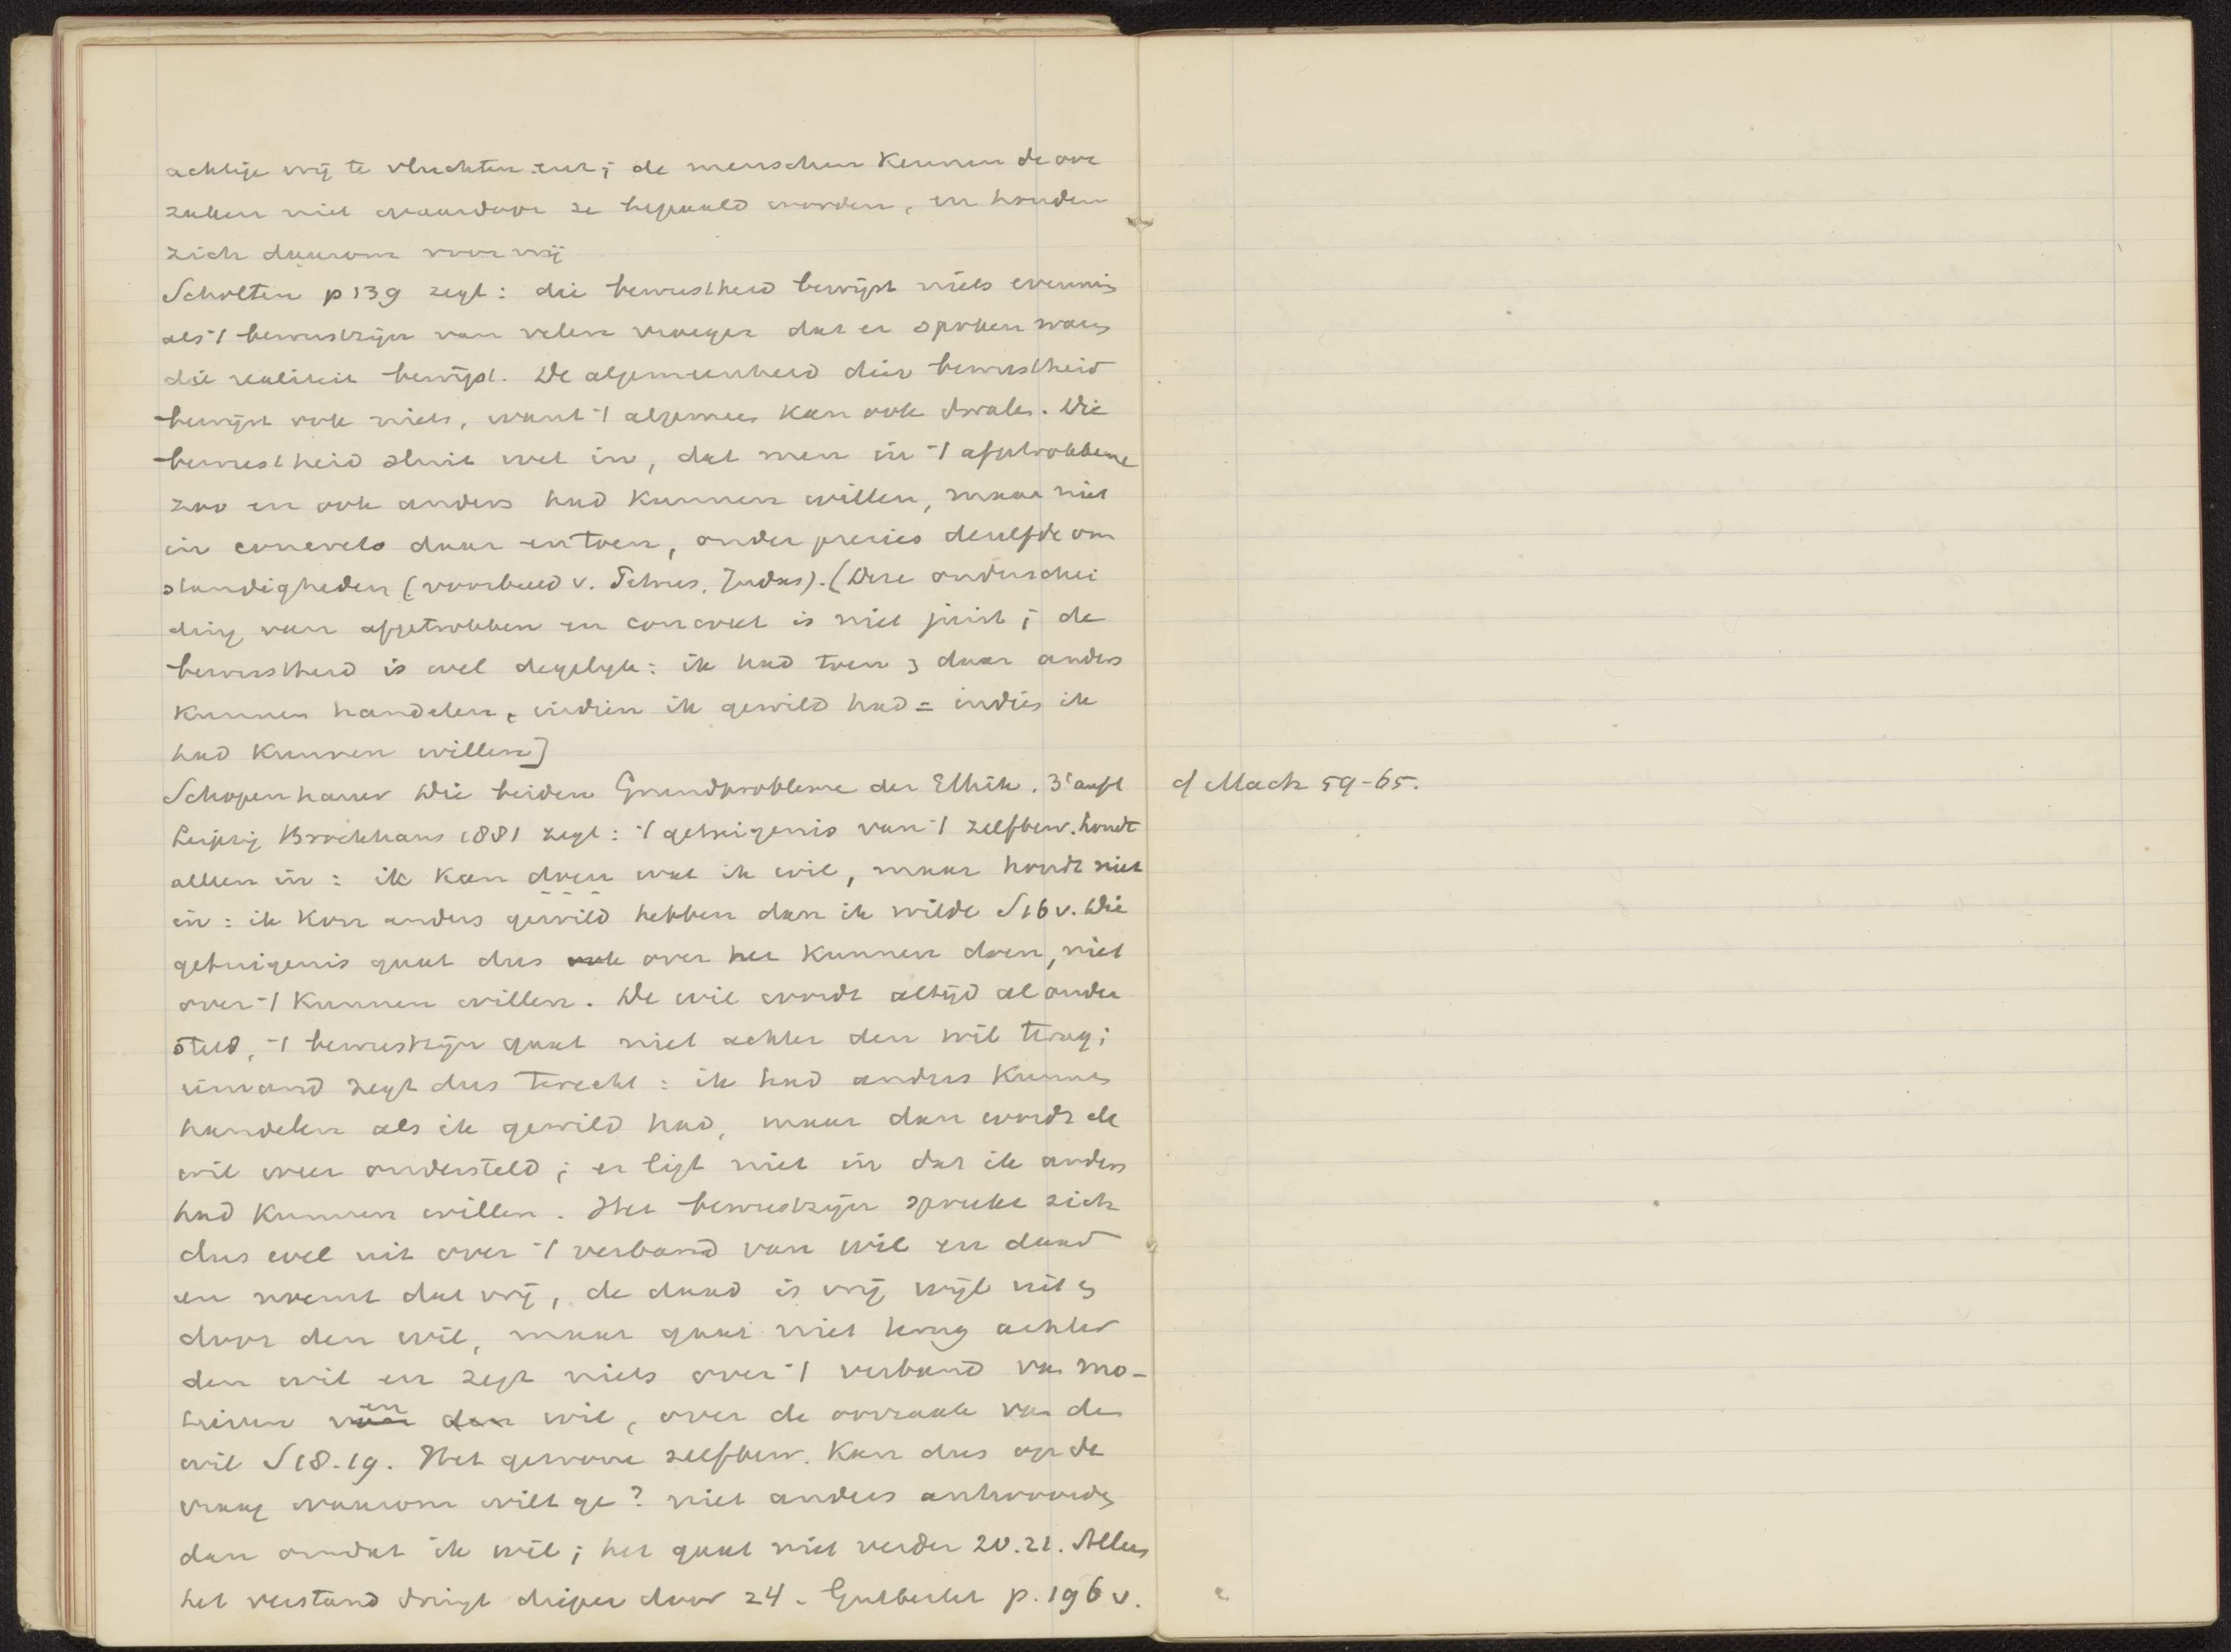 achtige vrij te vluchten enz; de menschen kennen de oor
zaken niet waardoor ze bepaald worden, en houden
zich daarom voor vrij
Scholten p 139 zegt: die bewustheid bewijst niets evenmin
als 't bewustzijn van velen vroeger dat er spoken waren
die realiteit bewijst. De algemeenheid dier bewustheid
bewijst ook niets, want 't algemeen kan ook dwalen. Die
bewustheid sluit wel in, dat men in 't afgetrokkene
zoo en ook anders had kunnen willen, maar niet
in concreto daar en toen, onder precies dezelfde om
standigheden (voorbeeld v. Petrus, Judas). (Deze onderschei
ding van afgetrokken en concreet is niet juist; de
bewustheid is wel degelijk: ik had toen en daar anders
kunnen handelen, indien ik gewild had = indien ik
had kunnen willen]
Schopenhauer Die beiden Grundprobleme der Ethik. 3e aufl
Leipzig Brockhaus 1881 zegt: 't getuigenis van 't zelfbew. houdt
alleen in: ik kan doen wat ik wil, maar houdt niet
in: ik kon anders gewild hebben dan ik wilde S 16 v. Die
getuigenis gaat dus ook over het kunnen doen, niet
over 't kunnen willen. De wil wordt altijd al onder
steld, 't bewustzijn gaat niet achter den wil terug;
iemand zegt dus terecht: ik had anders kunnen
handelen als ik gewild had, maar dan wordt de
wil weer ondersteld; er ligt niet in dat ik anders
had kunnen willen. Het bewustzijn spreekt zich
dus wel uit over 't verband van wil en daad
en noemt dat vrij, de daad is vrij wijl uit en
door den wil, maar gaat niet terug achter
den wil en zegt niets over 't verband van mo-
tieven voor en den wil, over de oorzaak van den
wil S 18-19. Het gewone zelfbew. kan dus op de
vraag waarom wilt ge? niet anders antwoorden
dan omdat ik wil; het gaat niet verder 20.21. Alleen
het verstand dringt dieper door 24. Gutberlet p. 196 v.
cf Mach 59-65.